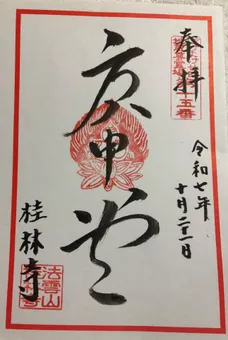 奉拝
令和七年
十月二十二日
庚申堂
桂林寺
法雲山